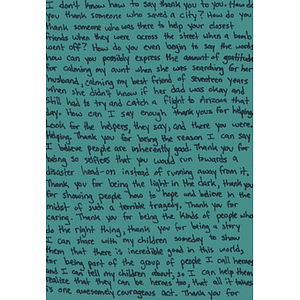 I don't know how to say thank you to you. How do
you thank someone who saved a city? How do you
thank someone who was there to help your closest
friends when they were across the street when a bomb
went off? How do you even begin to say the words
how can you possibly express the amount of gratitude
for calming my aunt when she was searching for her
husband, calming my best friend of seventeen years
when she didn't know if her dad was okay and
still had to try and catch a flight to Arizona that
day. How can I say enough thank yous for helping
Look for the helpers, they say, and there you were.
Helping. Thank you for being the reason I can say
I believe people are inherently good. Thank you for
being so selfless that you would run towards a
disaster head-on instead of running away from it.
Thank you for being the light in the dark, thank you
for showing people how to hope and believe in the
midst of such a terrible tragedy. Thank you for
caring. Thank you for being the kinds of people who
do the right thing, thank you for being a story
I can share with my children someday to show
them that there is incredible good in this world,
for being part of the group of people I call heroes
and I can tell my children about, so I can help them
realize that they can be heroes too, that all it takes
is one awesomely courageous act. Thank you for